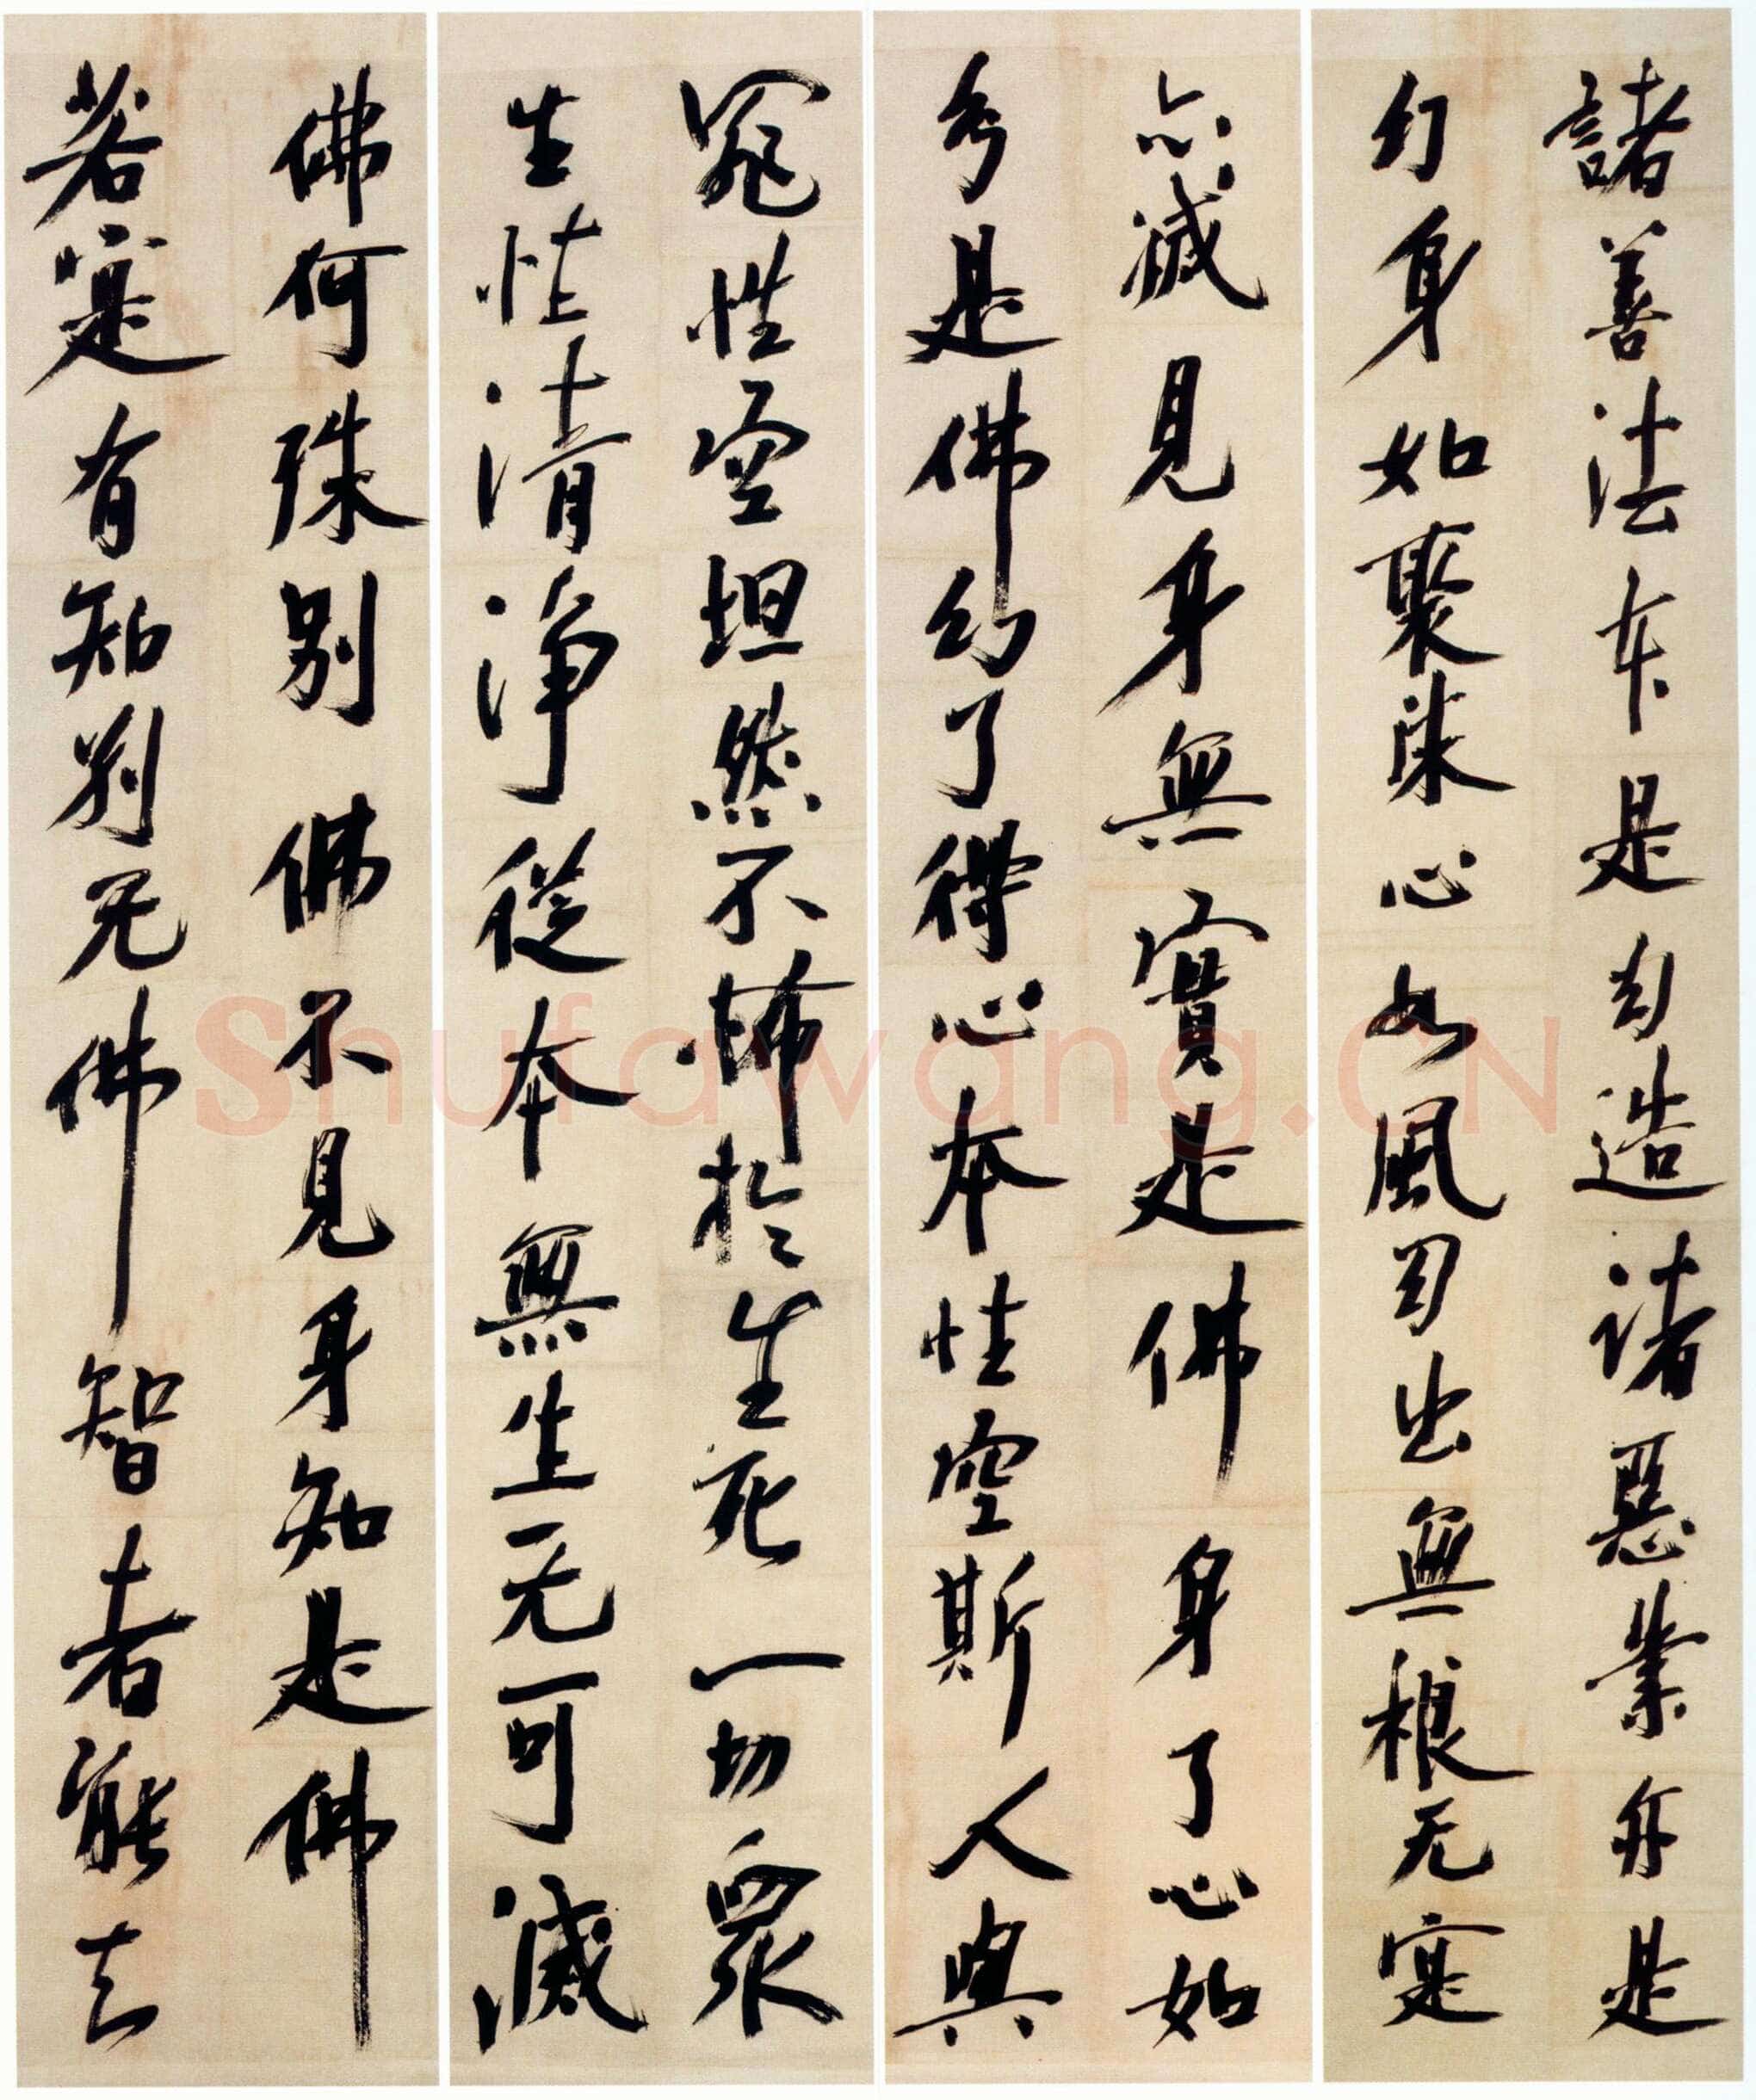 諸善法本是幻造諸惡業亦是
幻身如聚沫心如風幻出無根无寔
亦滅見身無實是佛身了心如
幻是佛幻了得心本性空斯人與
罪性空坦然不怖於生死一切眾
生性清淨從本無生无可滅
佛何殊別佛不見身知是佛
若寔有知別无佛智者能
shufawang.CN